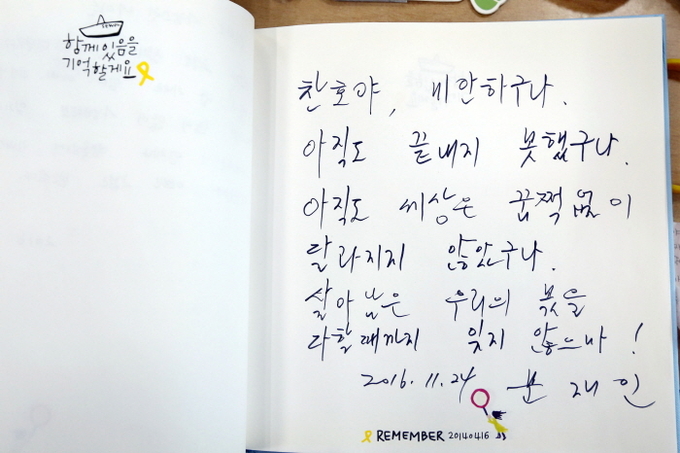 함께 있음을
기억할게요
찬호야, 미안하구나.
아직도 끝내지 못했구나.
아직도 세상은 꿈쩍없이
달라지지 않았구나.
살아남은 우리의 몫을
다할때까지 잊지 않으마!
2016. 11. 24 문재인
REMEMBER 20140416